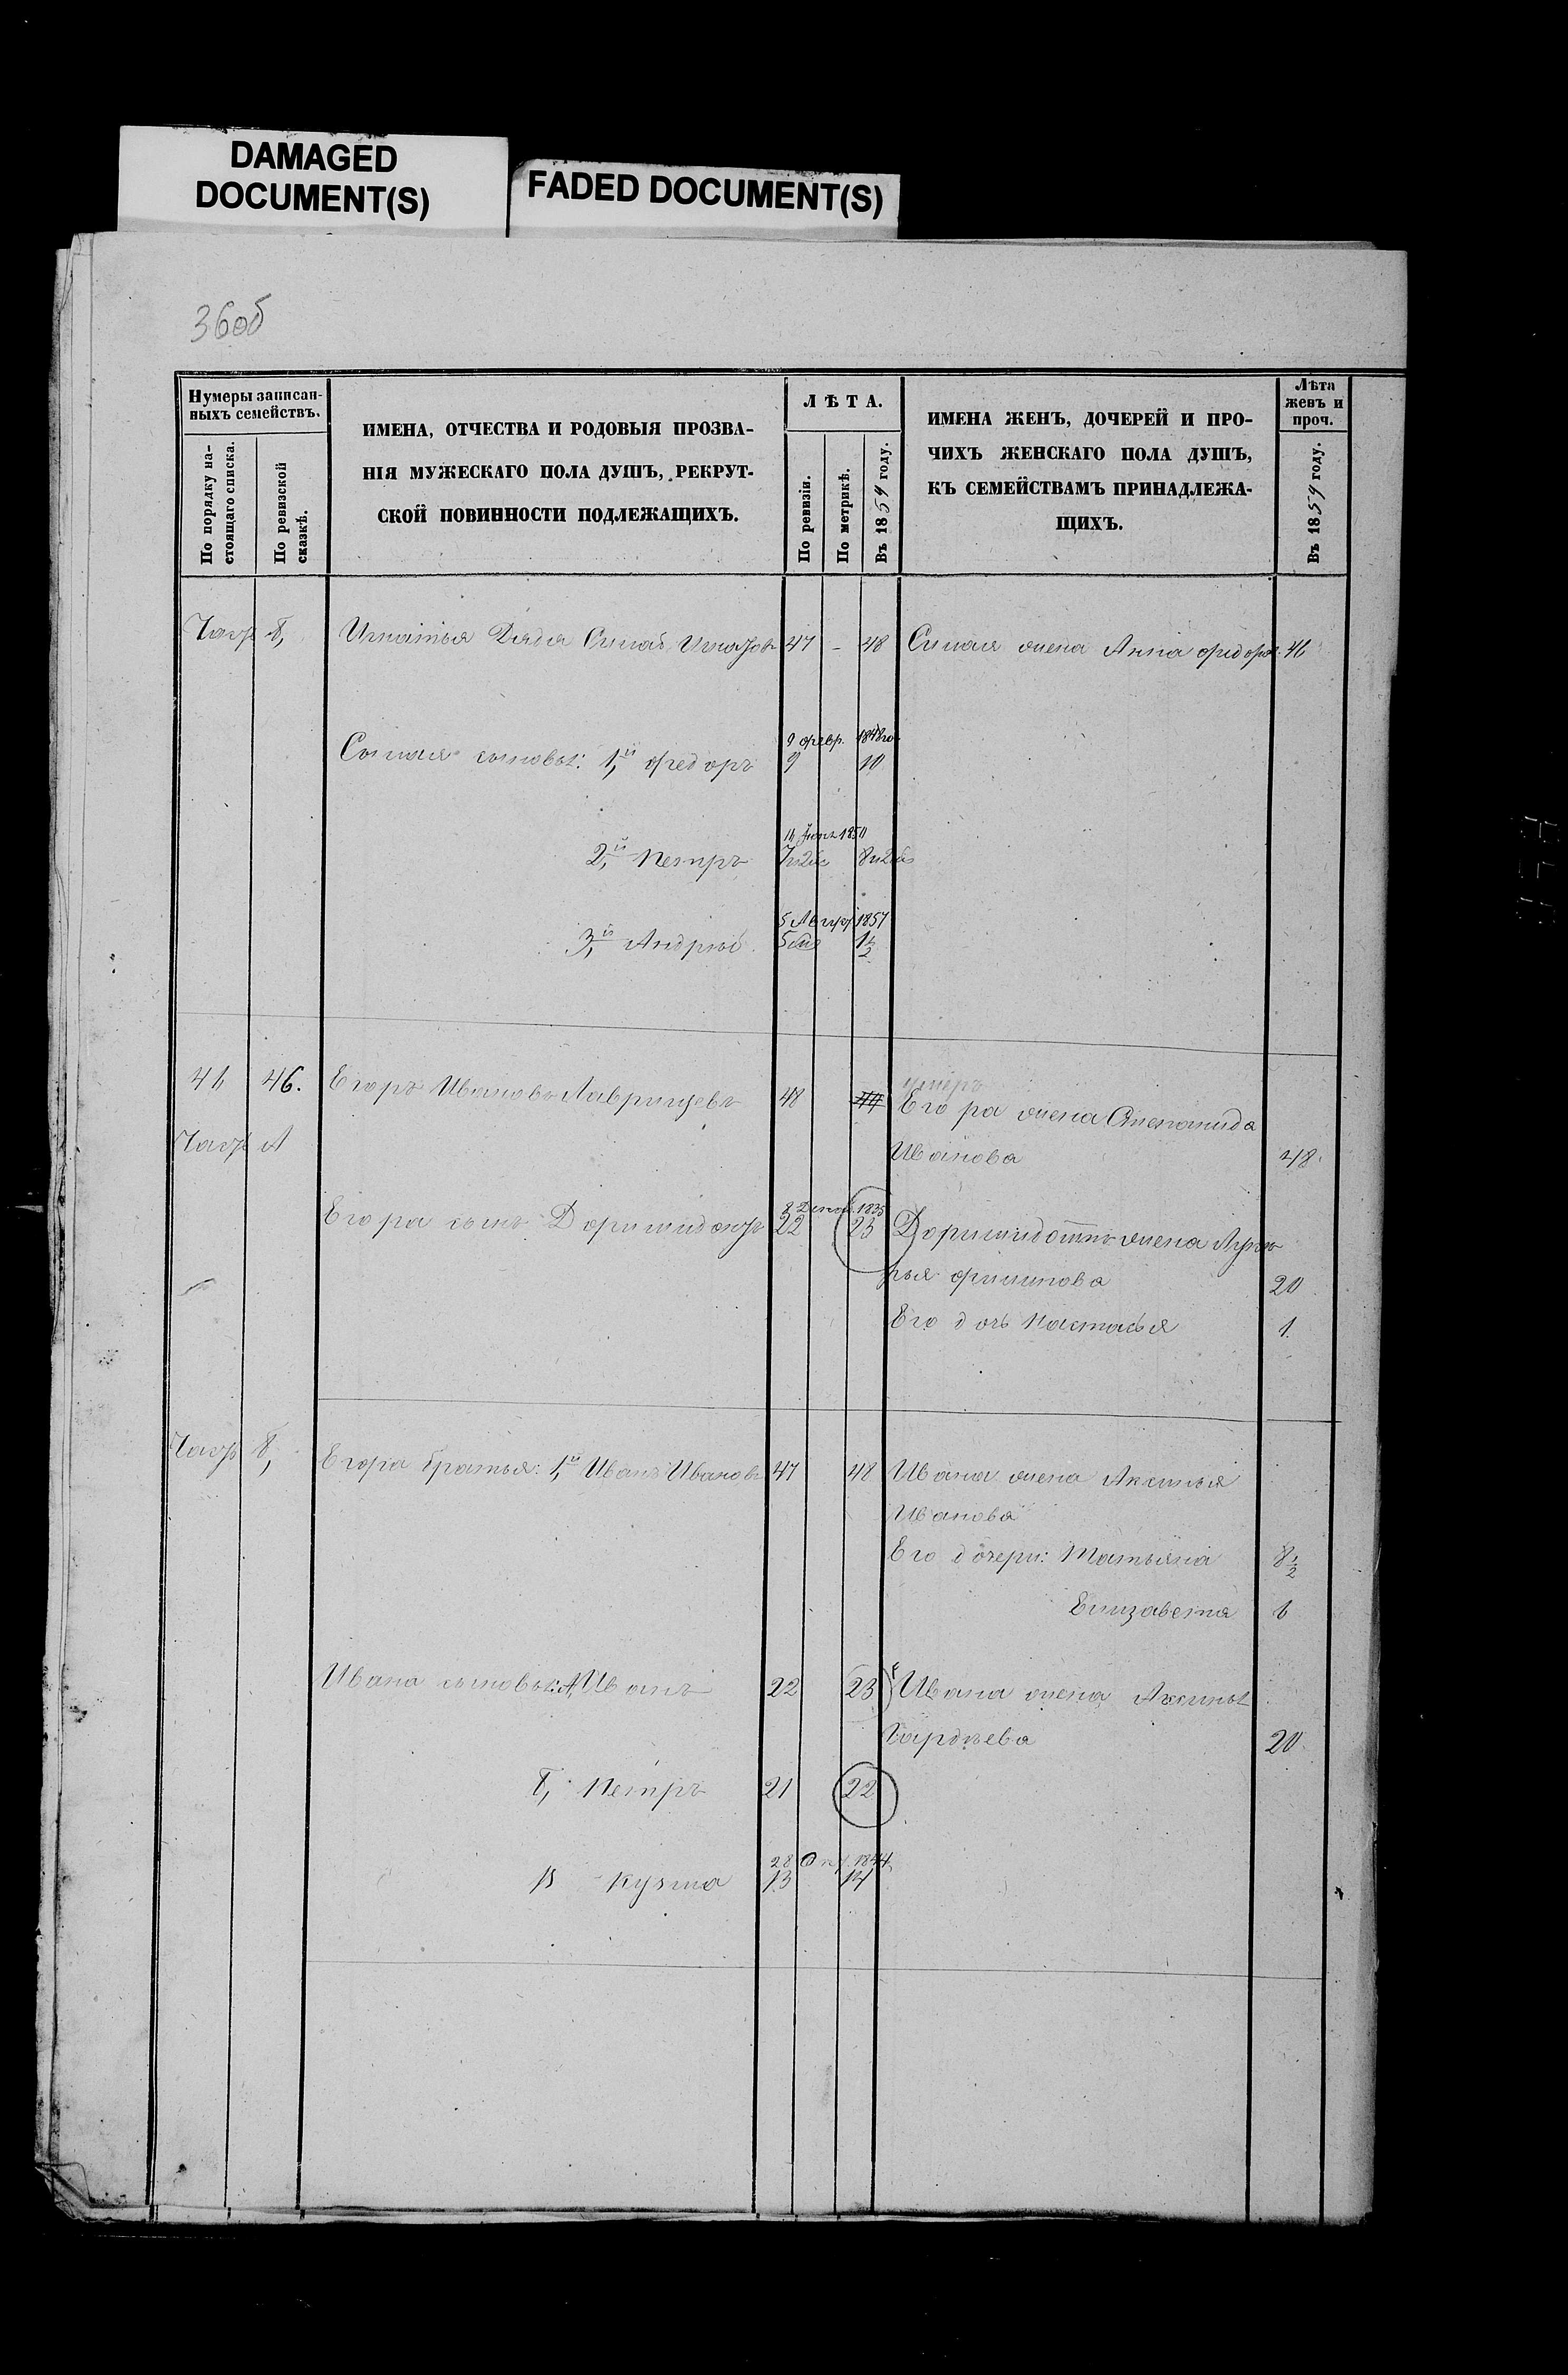 DAMAGED
DOCUMENT(S)
FADED DOCUMENT(S)
36об
Нумеры записан-
ныхъ семействъ.
По порядку на-
стоящаго списка.
По ревизской
сказкѣ.
ИМЕНА, ОТЧЕСТВА И РОДОВЫЯ ПРОЗВА-
НІЯ МУЖЕСКАГО ПОЛА ДУШЪ, РЕКРУТ-
СКОЙ ПОВИННОСТИ ПОДЛЕЖАЩИХЪ.
ЛѢТА.
По ревизіи.
По метрикѣ.
Въ 1859 году.
ИМЕНА ЖЕНЪ, ДОЧЕРЕЙ И ПРО-
ЧИХЪ ЖЕНСКАГО ПОЛА ДУШЪ,
КЪ СЕМЕЙСТВАМЪ ПРИНАДЛЕЖА-
ЩИХЪ.
Лѣта
женъ и
проч.
Въ 1859 году.
Б, Игнатья Дядя 47 - 48 жена Анна Федоро. 46
9 февр. 1848го
сыновья: 1й Федоръ 9 10
2й Петръ
5 1857
3й Андрей 1½
41 46. Егоръ Ивановъ Лавринцевъ 48 44 умеръ
Егора жена Степанида
Иванова 48.
А
8 1835
Егора сынъ Доримидонтъ 22 23 жена
Филипова 20
Его дочь Настасья 1.
Б, Егора братья: 1й Иванъ Ивановъ 47 48 Ивана жена Аксинья
Иванова
Его дочери: Татьяна 8½
Елизавета 6
Ивана сыновья: А, Иванъ 22 23 Ивана жена Аксинья
20
Б, Петръ 21 22
28 1844
В Кузма 13 14